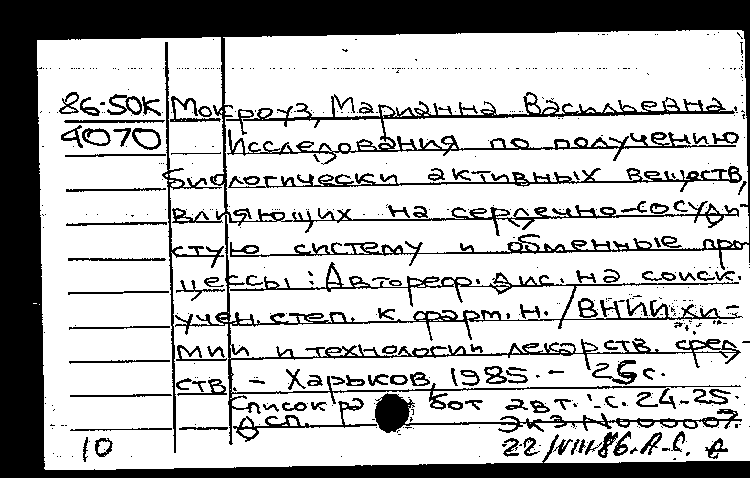 86-50К Мокроуз, Марианна Васильевна.
4070 Исследования по получению
биологически активных веществ,
влияющих на сердечно-сосуди-
стую систему и обменные про-
цессы: Автореф. дис. на соиск.
учен. степ. к. фарм. н. / ВНИИ хи-
мии и технологии лекарств. сред-
ств. - Харьков, 1985. - 25 с.
Список работ авт.: с. 24-25.
ДСП. Экз. N000007.
10 22/VIII-86.